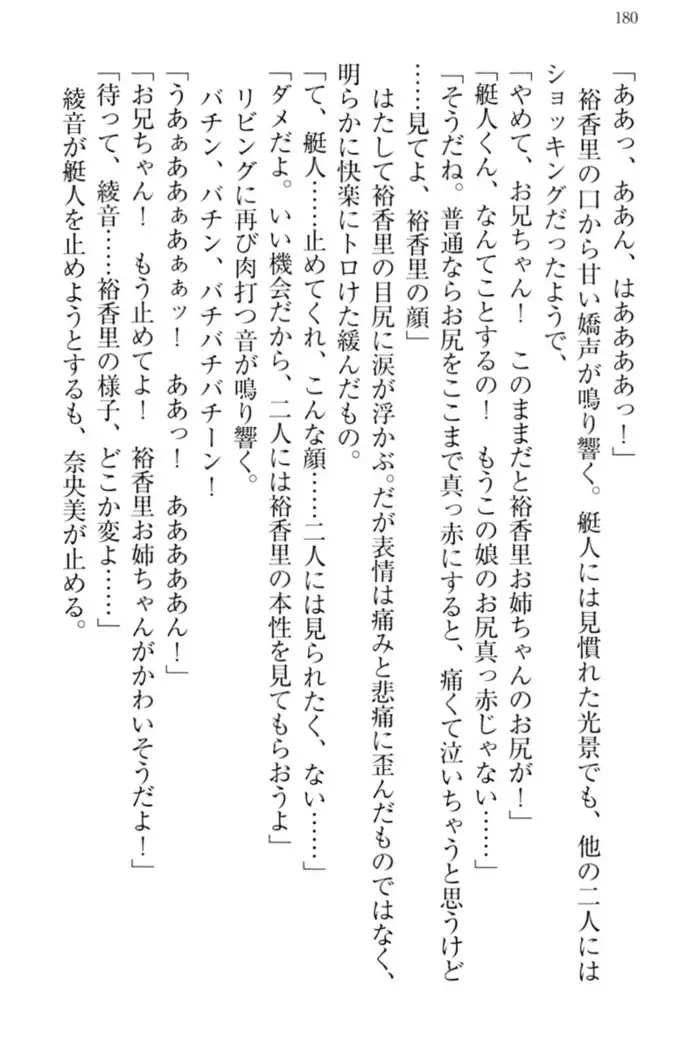 180
「ああっ、ああん、はああああっ！」
裕香里の口から甘い嬌声が鳴り響く。艇人には見慣れた光景でも、他の二人には
ショッキングだったようで、
「やめて、お兄ちゃん！　このままだと裕香里お姉ちゃんのお尻が！」
「艇人くん、なんてことするの！　もうこの娘のお尻真っ赤じゃない……」
「そうだね。普通ならお尻をここまで真っ赤にすると、痛くて泣いちゃうと思うけど
……見てよ、裕香里の顔」
はたして裕香里の目尻に涙が浮かぶ。だが表情は痛みと悲痛に歪んだものではなく、
明らかに快楽にトロけた緩んだもの。
「て、艇人……止めてくれ、こんな顔……二人には見られたく、ない……」
「ダメだよ。いい機会だから、二人には裕香里の本性を見てもらおうよ」
リビングに再び肉打つ音が鳴り響く。
バチン、バチン、バチバチバチーン！
「うあぁああぁあぁぁッ！　ああっ！　あああああん！」
「お兄ちゃん！　もう止めてよ！　裕香里お姉ちゃんがかわいそうだよ！」
「待って、綾音……裕香里の様子、どこか変よ……」
綾音が艇人を止めようとするも、奈央美が止める。